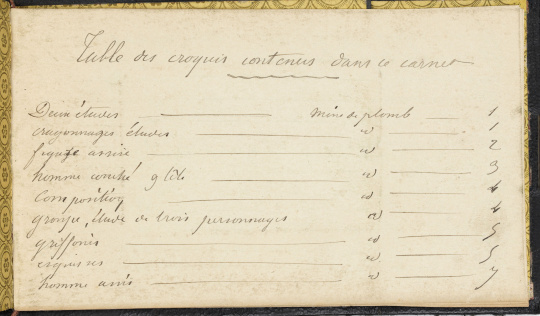 Table des croquis contenus dans ce carnet
Deux études — mine de plomb — 1
crayonnages études — id — 1
figure assise — id — 2
homme couché — id — 3
Composition — id — 4
groupe, étude de trois personnages — id — 4
griffonis — id — 5
esquisses — id — 5
homme assis — id — 7